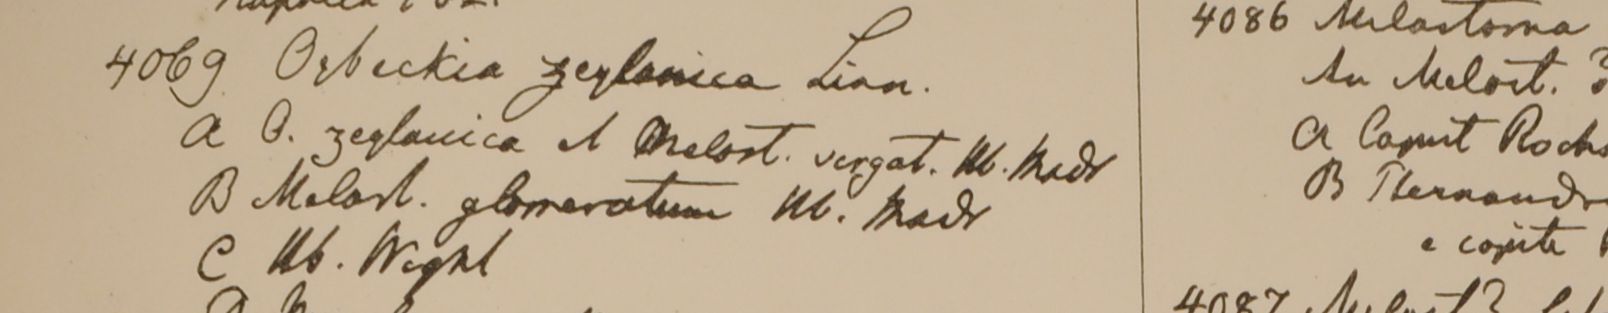 4069 Osbeckia zeylanica Linn.
A O. zeylanica et Melast. virgat. Hb. Madr
B Melast. glomeratum Hb. Madr
C Hb. Wight
4086 Melastoma
An Melast.
A Caput Rochs
B Hernandr
e capite
4087 Melast?